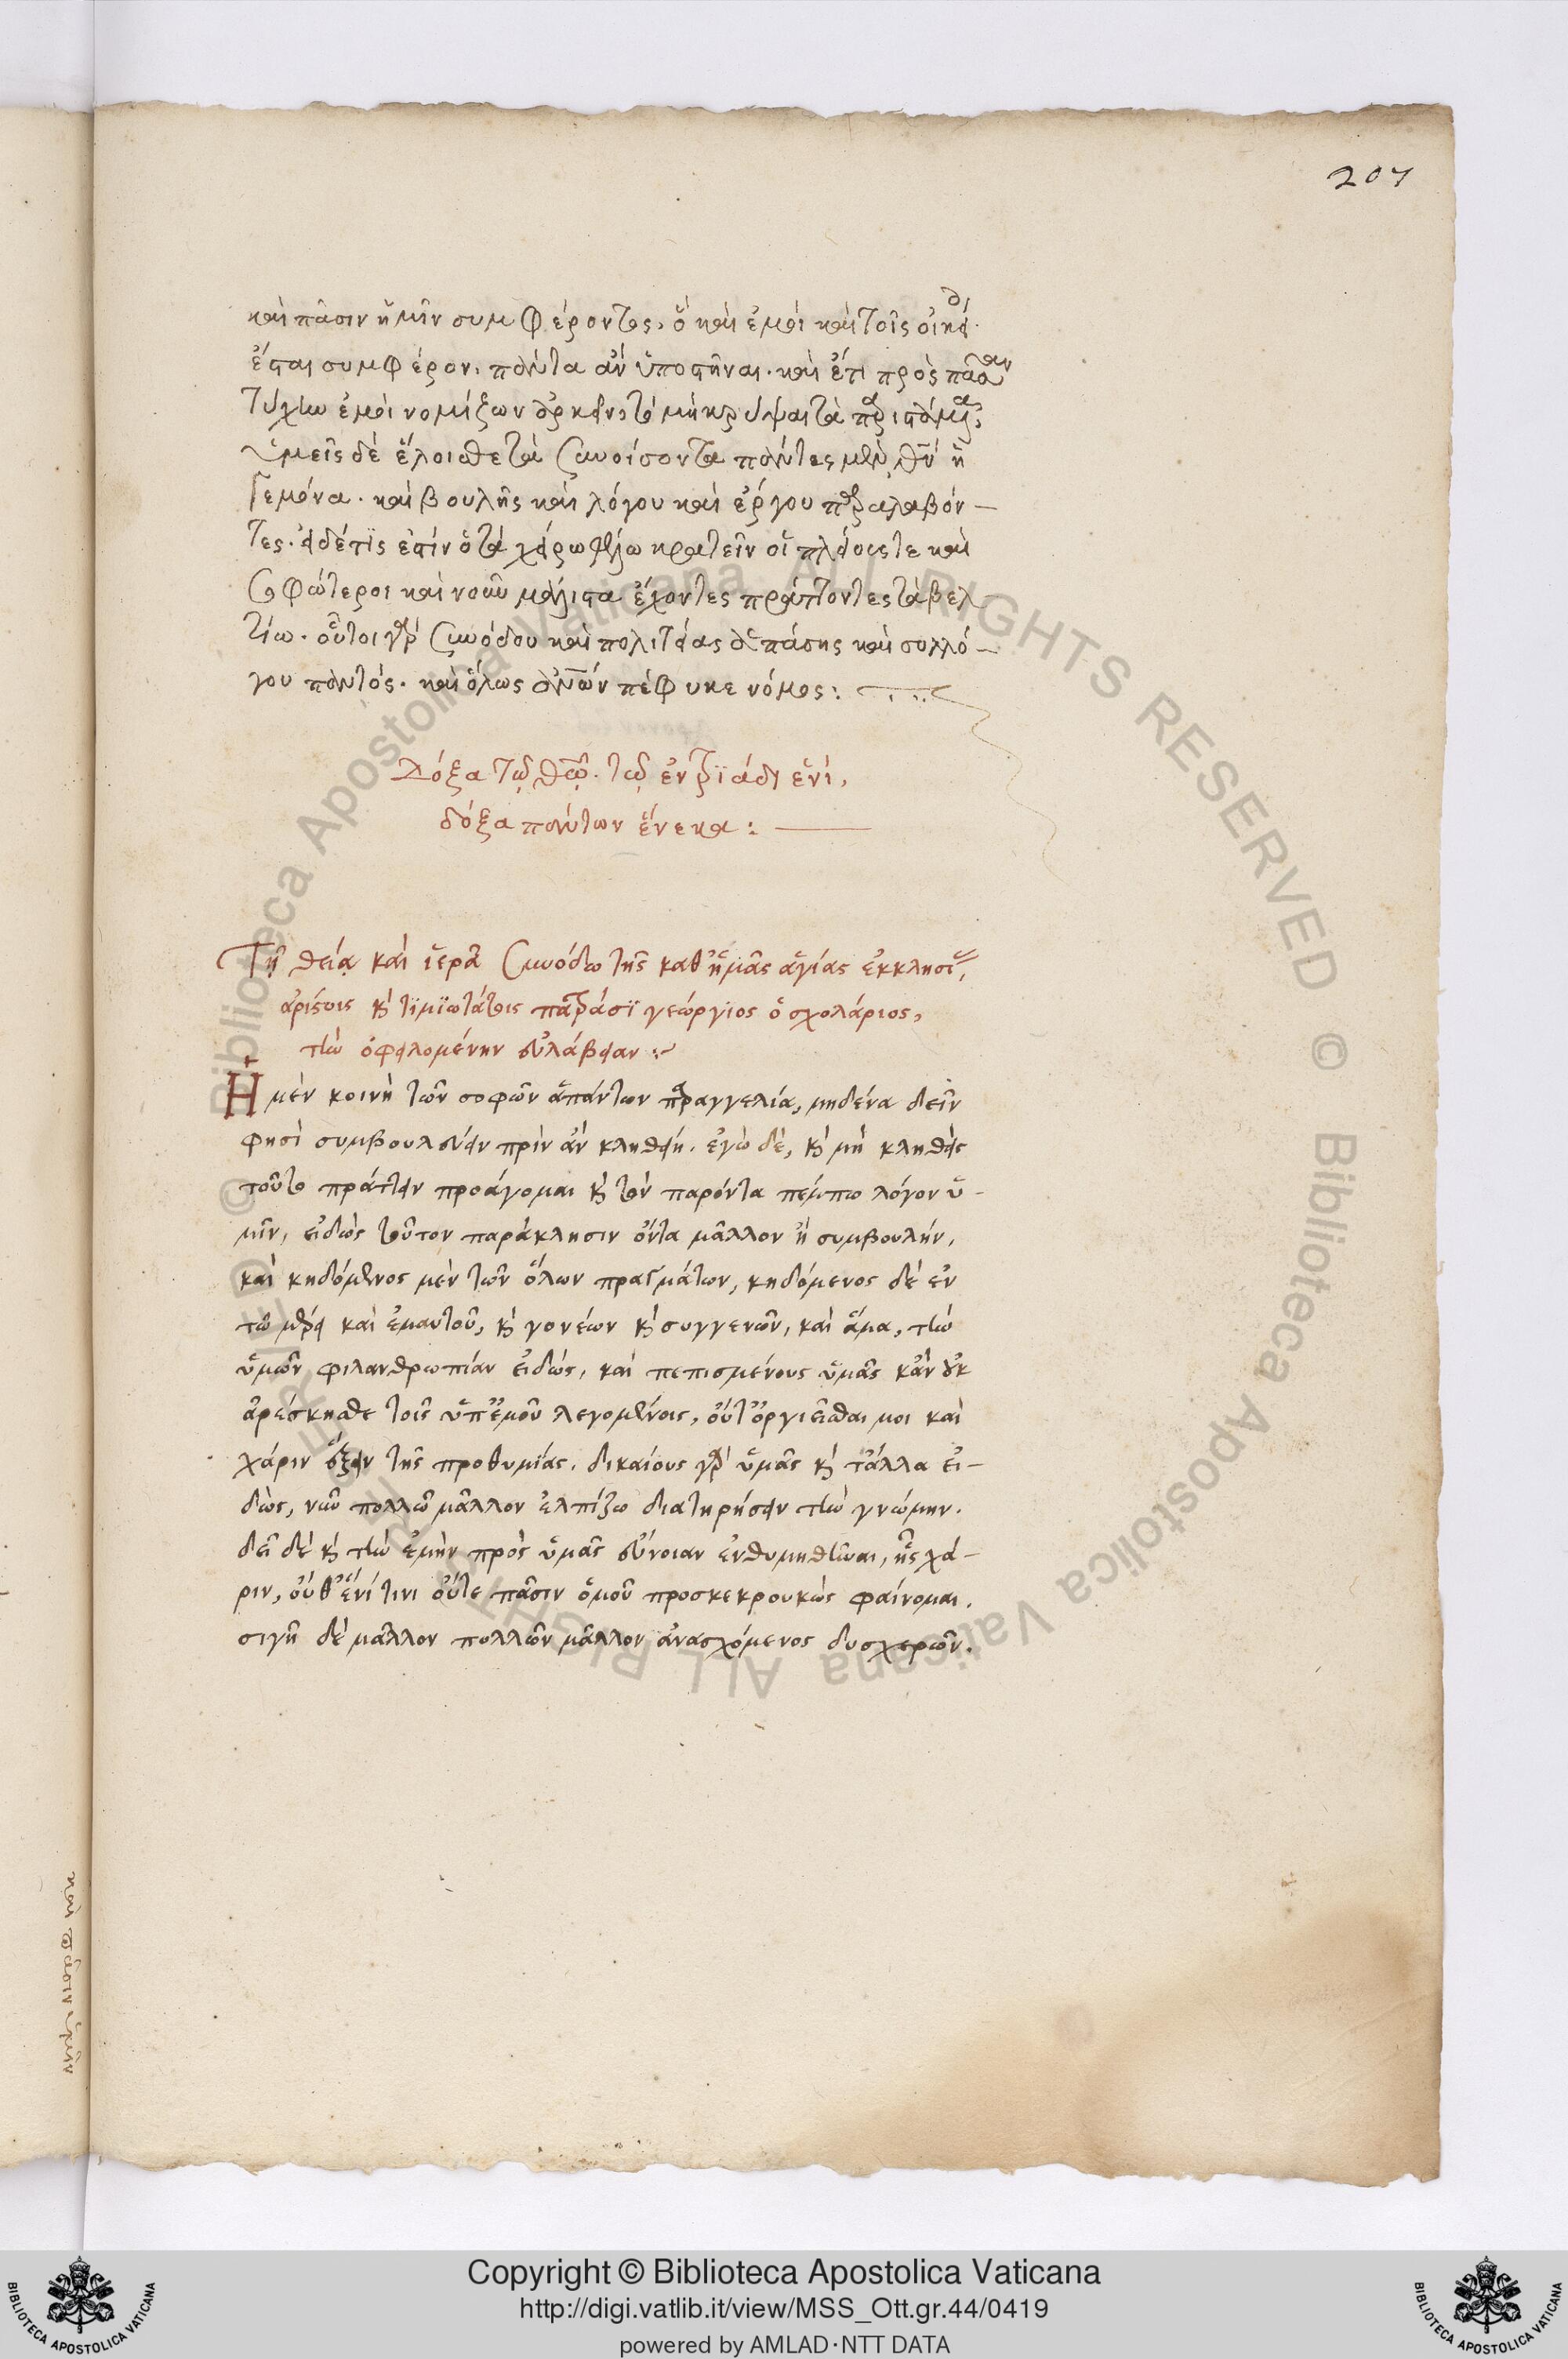 207
καὶ πᾶσιν ἡμῖν συμφέροντος, ὃ καὶ ἐμοὶ καὶ τοῖς οἰκεί
έσται συμφέρον, πάντα ἂν ὑποστῆναι. καὶ ἔτι πρὸς πᾶσαν
τύχην ἐμοὶ νομίζων ἀρκεῖν, τὸ μὴ κρύψαι τὰ παριστάμενα,
ὑμεῖς δὲ ἕλοισθε τὰ συνοίσοντα πάντες μὲν θν ἡ
γεμόνα. καὶ βουλῆς καὶ λόγου καὶ ἔργου παραλαβόν –
τες. εἰ δέ τις ἐστὶν ὁ τὰ χείρω κρατεῖν οἱ πλείους τε καὶ
σοφώτεροι καὶ νοῦν μάλιστα ἔχοντες πράττοντες τὰ βελ
τίω. οὗτοι γὰρ συνόδου καὶ πολιτείας ἁπάσης καὶ συλλό –
γου παντός. καὶ ὅλως ἀνων πέφυκε νόμος:
Δόξα τῷ θῶ. τῷ ἐν τριάδι ἑνί,
δόξα πάντων ἕνεκα: —
Τῇ θείᾳ καὶ ἱερᾷ συνόδω τῆς καθ' ἡμᾶς ἁγίας ἐκκλησίας,
ἀρίστοις κ τιμϊωτάτοις πατράσϊ γεώργϊος ὁ σχολάριος,
τὴν ὀφειλομένην εὐλάβειαν :~
Ἡ μὲν κοινὴ τῶν σοφῶν ἁπάντων παραγγελία, μηδένα δεῖν
φησὶ συμβουλεύειν πρὶν ἂν κληθείη. ἐγὼ δὲ, κ μὴ κληθεὶς
τοῦτο πράττειν προάγομαι κ τὸν παρόντα πέμπω λόγον ὑ -
μῖν, εἰδὼς τοῦτον παράκλησιν ὄντα μᾶλλον ἢ συμβουλήν,
καὶ κηδόμενος μὲν τῶν ὅλων πραγμάτων, κηδόμενος δὲ ἐν
τῶ μέρει καὶ ἐμαυτοῦ, κ γονέων κ συγγενῶν, καὶ ἅμα, τὴν
ὑμῶν φιλανθρωπίαν εἰδώς, καὶ πεπισμένους ὑμᾶς κἂν οὐκ
ἀρέσκησθε τοῖς ὑπ' ἐμοῦ λεγομένοις, οὔτ' ὀργιεῖσθαι μοι καὶ
χάριν ἕξειν τῆς προθυμίας. δικαίους γὰρ ὑμᾶς κ τἄλλα εἰ –
δὼς, νῦν πολλῶ μᾶλλον ἐλπίζω διατηρήσειν τὴν γνώμην.
δεῖ δὲ κ τὴν ἐμὴν πρὸς ὑμᾶς εὔνοιαν ἐνθυμηθῆναι, ἧς χά –
ριν, οὔθ' ἑνί τινι οὔτε πᾶσιν ὁμοῦ προσκεκρουκὼς φαίνομαι.
σιγῆ δὲ μᾶλλον πολλῶν μᾶλλον ἀνασχόμενος δυσχερῶν.
καὶ πᾶσιν ἡμῖν
© Biblioteca Apostolica Vaticana ALL RIGHTS RESERVED © Biblioteca Apostolica Vaticana ALL RIGHTS RESERVED
Copyright © Biblioteca Apostolica Vaticana
http://digi.vatlib.it/view/MSS_Ott.gr.44/0419
powered by AMLAD·NTT DATA
BIBLIOTECA APOSTOLICA VATICANA
BIBLIOTECA APOSTOLICA VATICANA